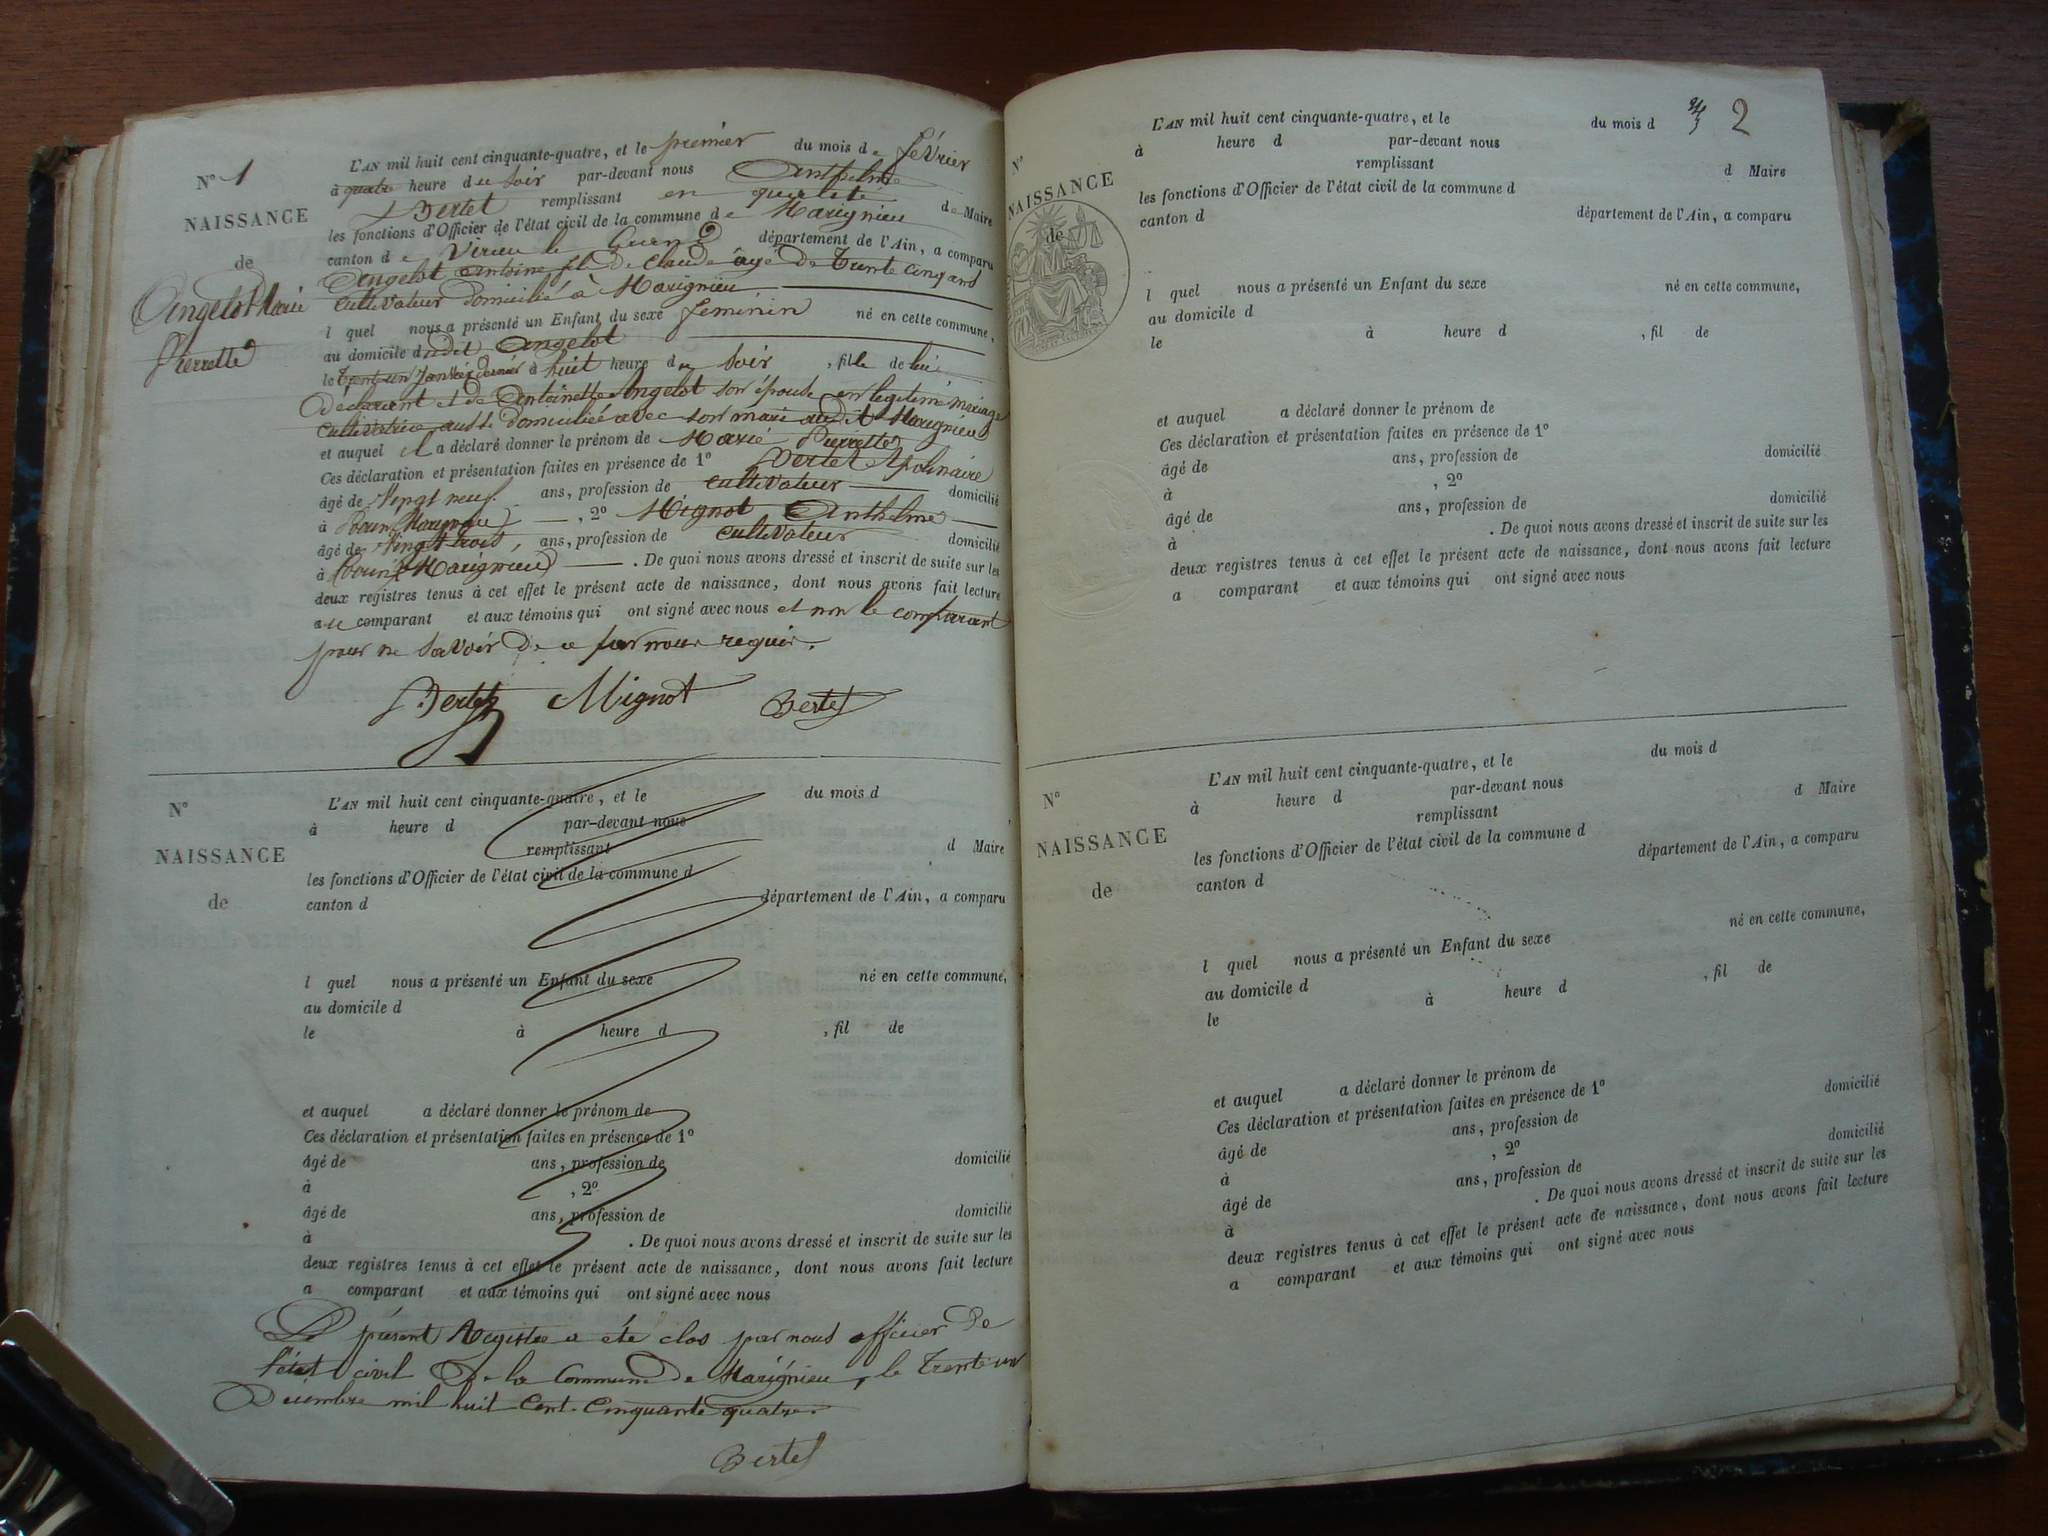 N° 1
NAISSANCE
de
Angelot Marie
Pierrette
L'AN mil huit cent cinquante-quatre, et le premier du mois de février
à quatre heure du soir par-devant nous Anthelme
Bertet remplissant en qualité de Maire
les fonctions d'Officier de l'état civil de la commune de Marignieu
canton de Virieu le Grand département de l'Ain, a comparu
Angelot Antoine fils de Claude âgé de trente cinq ans
cultivateur domicilié à Marignieu
l quel nous a présenté un Enfant du sexe féminin né en cette commune,
au domicile dudit Angelot
le trente un Janvier dernier à huit heure du soir, fille de lui
déclarant et de Antoinette Angelot son épouse en légitime mariage
cultivatrice aussi domiciliée avec son mari audit Marignieu
et auquel il a déclaré donner le prénom de Marie Pierrette
Ces déclaration et présentation faites en présence de 1° Bertet Apolinaire
âgé de vingt neuf ans, profession de cultivateur domicilié
à Marignieu, 2° Mignot Anthelme
âgé de vingt trois, ans, profession de cultivateur domicilié
à Marignieu. De quoi nous avons dressé et inscrit de suite sur les
deux registres tenus à cet effet le présent acte de naissance, dont nous avons fait lecture
au comparant et aux témoins qui ont signé avec nous et non le comparant
pour ne savoir de ce par nous requis.
Bertet Mignot Bertet
N°
NAISSANCE
de
L'AN mil huit cent cinquante-quatre, et le du mois d
à heure d par-devant nous
remplissant d Maire
les fonctions d'Officier de l'état civil de la commune d
canton d département de l'Ain, a comparu
l quel nous a présenté un Enfant du sexe né en cette commune,
au domicile d
le à heure d , fil de
et auquel a déclaré donner le prénom de
Ces déclaration et présentation faites en présence de 1°
âgé de ans, profession de domicilié
à , 2°
âgé de ans, profession de domicilié
à . De quoi nous avons dressé et inscrit de suite sur les
deux registres tenus à cet effet le présent acte de naissance, dont nous avons fait lecture
a comparant et aux témoins qui ont signé avec nous
Le présent Registre a été clos par nous officier de
l'état civil de la Commune de Marignieu, le trente un
Decembre mil huit cent cinquante quatre.
Bertet
2
N°
NAISSANCE
de
L'AN mil huit cent cinquante-quatre, et le du mois d
à heure d par-devant nous
remplissant d Maire
les fonctions d'Officier de l'état civil de la commune d
canton d département de l'Ain, a comparu
l quel nous a présenté un Enfant du sexe né en cette commune,
au domicile d
le à heure d , fil de
et auquel a déclaré donner le prénom de
Ces déclaration et présentation faites en présence de 1°
âgé de ans, profession de domicilié
à , 2°
âgé de ans, profession de domicilié
à . De quoi nous avons dressé et inscrit de suite sur les
deux registres tenus à cet effet le présent acte de naissance, dont nous avons fait lecture
a comparant et aux témoins qui ont signé avec nous
N°
NAISSANCE
de
L'AN mil huit cent cinquante-quatre, et le du mois d
à heure d par-devant nous
remplissant d Maire
les fonctions d'Officier de l'état civil de la commune d
canton d département de l'Ain, a comparu
l quel nous a présenté un Enfant du sexe né en cette commune,
au domicile d
le à heure d , fil de
et auquel a déclaré donner le prénom de
Ces déclaration et présentation faites en présence de 1°
âgé de ans, profession de domicilié
à , 2°
âgé de ans, profession de domicilié
à . De quoi nous avons dressé et inscrit de suite sur les
deux registres tenus à cet effet le présent acte de naissance, dont nous avons fait lecture
a comparant et aux témoins qui ont signé avec nous